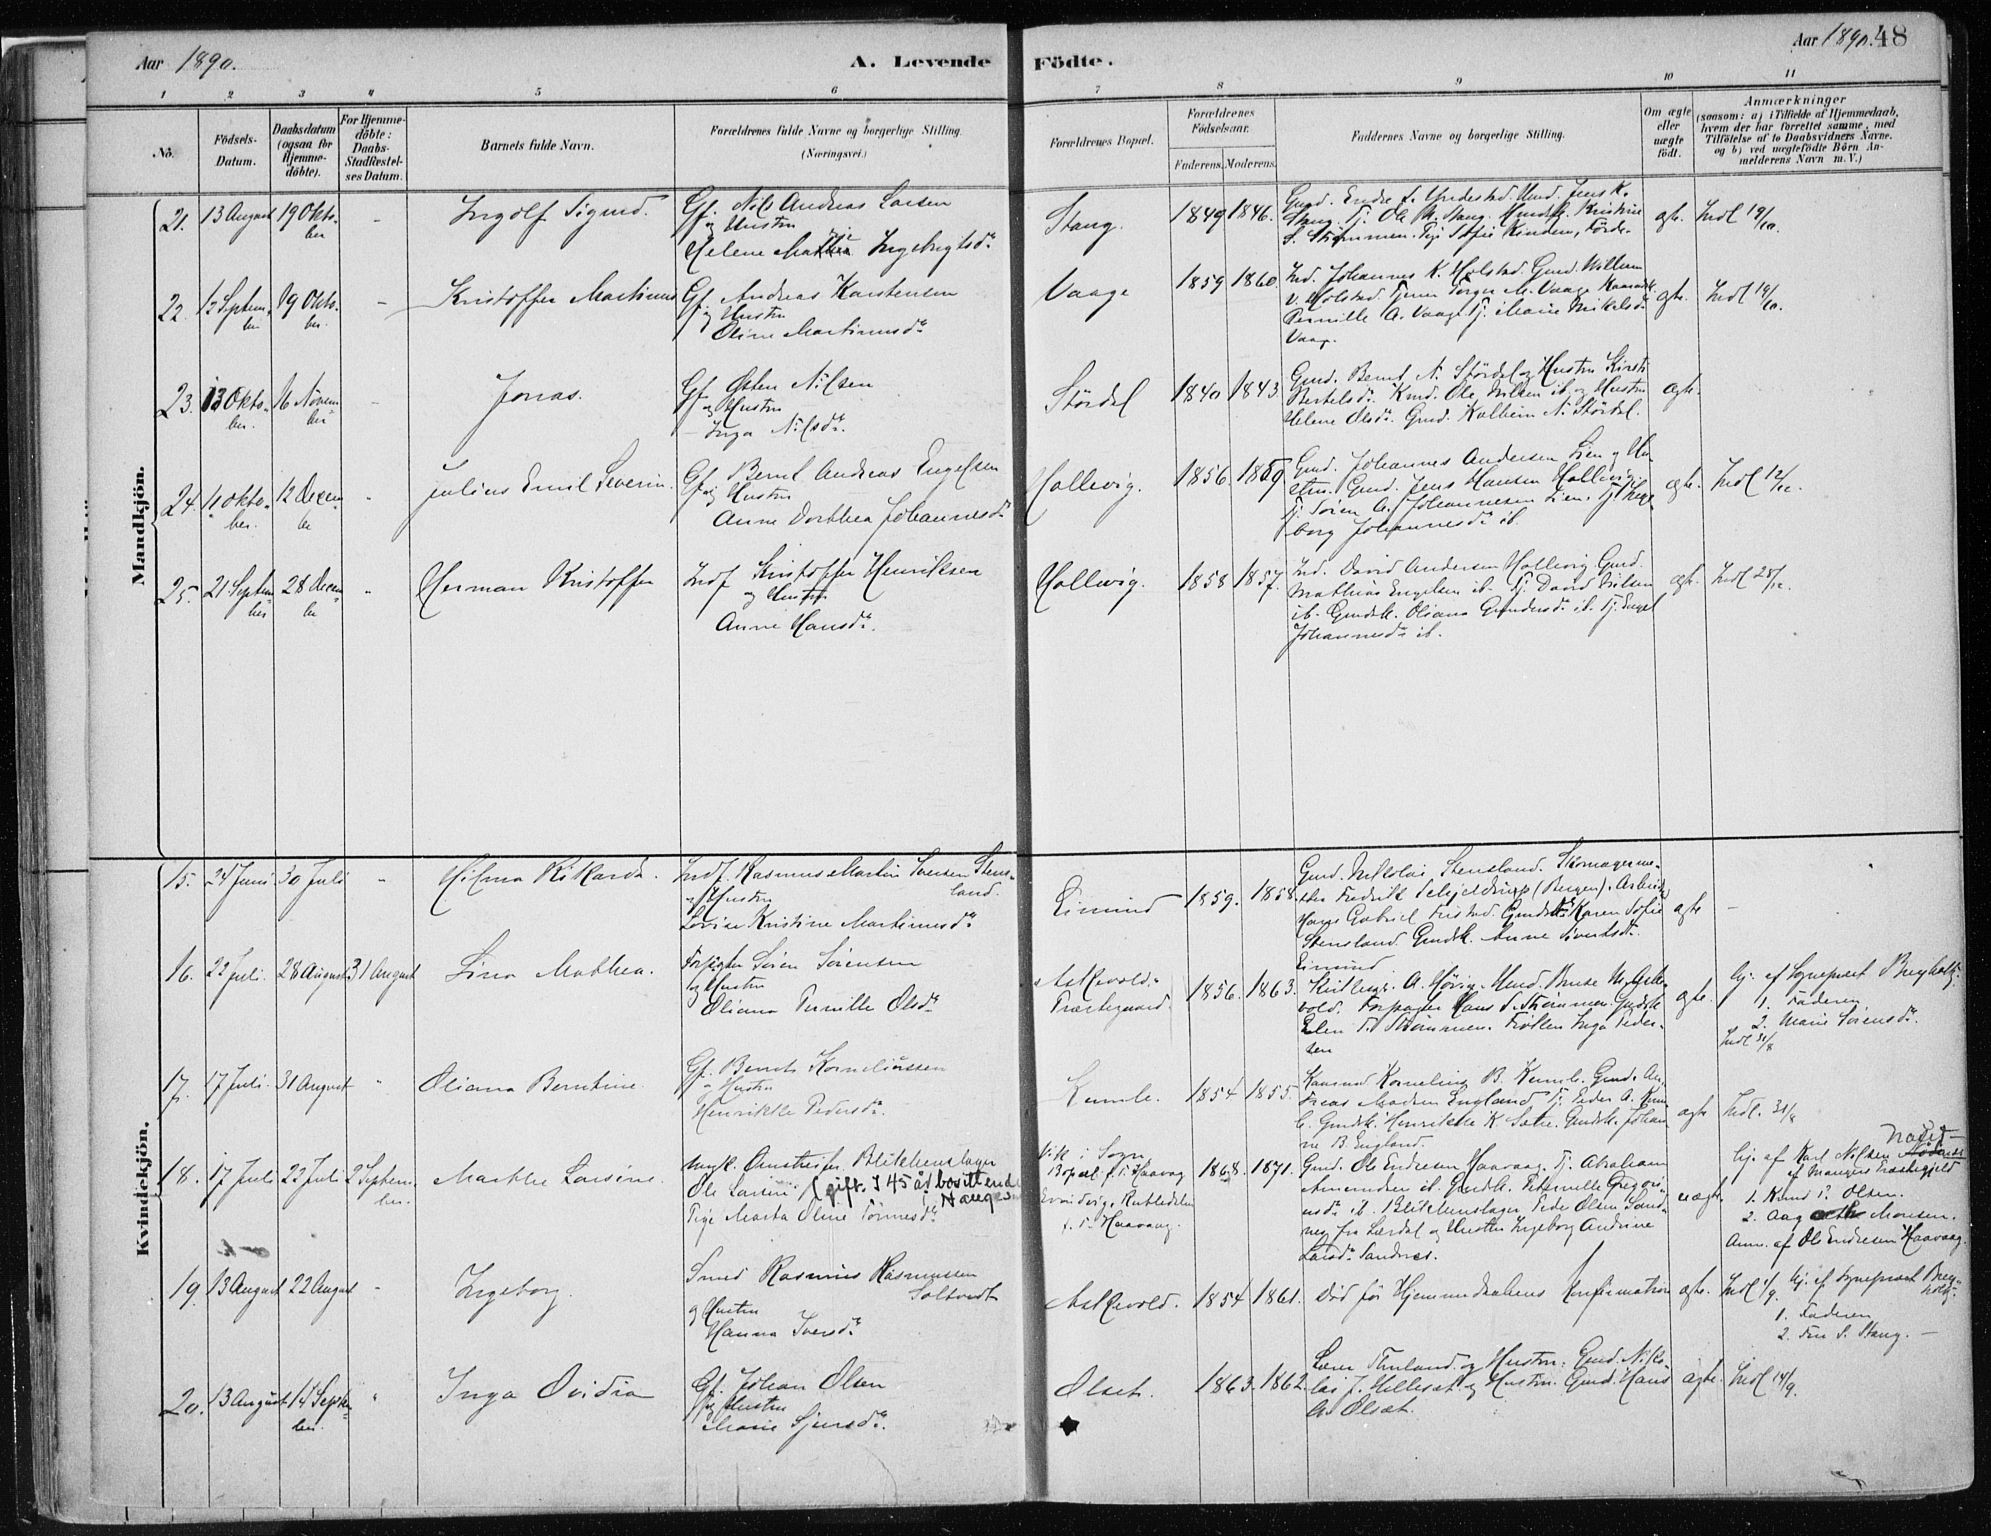 Aar 1890.
A. Levende
Födte.
Aar 1890.
48
1 2 3 4 5 6 7 8 9 10 11
No.
Födsels-
Datum.
Daabsdatum
(ogsaa for
Hjemme-
döbte).
For Hjemme-
döbte:
Daabs-
Stadfæstel-
ses Datum.
Barnets fulde Navn.
Forældrenes fulde Navne og borgerlige Stilling.
(Næringsvei.)
Forældrenes Bopæl.
Forældrenes
Födselsaar.
Faderens. Moderens.
Faddernes Navne og borgerlige Stilling.
Om ægte
eller
uægte
födt.
Anmærkninger
(saasom: a) i Tilfælde af Hjemmedaab,
hvem der har forrettet samme, med
Tilföielse af to Daabsvidners Navne.
og b) ved uægtefödte Börn An-
melderens Navn m. V.)
Mandkjön.
21. 13 August 19 Okto-
ber
-
Ingolf Sigurd.
Gf. Nils Andreas Larsen
og Hustru
Helene Ingebrigtsd.
Stang.
1849 1846.
Stang. Tj. Ole M. Stang. Kristine
S. Strømmen. Pige Sofie Førde.
ægte. Indl 19/10.
22. 12 Septem-
ber
19 Okto-
ber.
-
Kristoffer Martinus
Gf. Andreas Karstensen
og Hustru
Oline Martinusd.
Vaage
1859 1860.
Ind. Johannes K. Holstad. Gmd. Willum
V. Holstad. Torger M. Vaage
Pernille A. Vaage Tj. Marie Mikelsd.
Vaag.
ægte. Indl 19/10.
23. 13 Okto-
ber.
16 Novem-
ber
Jonas.
Gf. Østen Nilsen
og Hustru
Inga Nilsd.
Stördal
1840 1843.
Gmd. Bernt N. Stördal og Hustru Kirsti
Bertelsd. Ole Nilsen ib. og Hustru
Helene Olsd. Gmd. Kolbein N. Stördal.
ægte.
24. 11 Okto-
ber.
12 Decem-
ber
"
Julius Emil Severin.
Gf. Bernt Andreas Engelsen
og Hustru
Anne Dorthea Johannesd.
Hollevig.
1856. 1859
Gmd. Johannes Andersen Lien og Hu-
stru. Gmd. Jens Hansen Hollevig
Tj. Sören A. Johannesen Lien. Tj. Inge-
borg Johannesd. ib.
ægte. Indl 12/12.
25. 21 Septem-
ber
28 Decem-
ber
"
Herman Kristoffer
Indf Kristoffer Henriksen
og Hustru
Anne Hansd.
Hollevig.
1858 1857.
Ind. David Andersen Hollevig Gmd.
Mathias Engelsen ib. Tj. David Nilsen
ib. Gmdsk. Oliana Gundersd. ib. Tj. Engel
Johannesd. ib.
ægte. Indl 28/12.
Kvindekjön.
15. 24 Juni 30 Juli
"
Hilma Rikarda.
Indf. Rasmus Martin Iversen Stens-
land.
og Hustru
Lovise Kristine Martinusd.
Limind
1859. 1858.
Gmd. Nikolai Stensland. Skomagerme-
ster Fredrik (Bergen). Arbeider
Hans Gabriel Fristad. Gmdsk. Karen Sofie
Stensland Gmdsk. Anne Sivertsd.
Limind
ægte
-
16. 22 Juli. 28 August 31 August
Lina Mathea.
Forpagter Sören Sörensen
og Hustru
Oliana Pernille Olsd.
Askevold
Præstegaard
1856. 1863.
A. Hövig.
vold. Forpagter Hans S. Strömmen. Gmdsk.
Elen T. Strömmen. Fröken Inga Peder-
sen
ægte.
hj. af Sogneprest Bregholtz.
1. Faderen
2. Marie Sörensd.
Indl 31/8
17. 17 Juli. 31 August
"
Oliana Berntine.
Gf. Bernt Korneliussen
og Hustru
Henrikke Pedersd.
Kumle.
1854 1855.
Kaarmd Kornelius B. Kumle. Gmd. An-
dreas Madsen England Tj. Peder A. Kum-
le. Gmdsk. Henrikke K. Sætre. Gmdsk. Johan-
ne B. England.
ægte Indl. 31/8
18. 17 Juli 22 Juli 2 Septem-
ber.
Marthe Larsine.
Ungk. Omstreifer Blikkenslager
Ole Larsen (gift. 45 år bosittende
i Haugesund
Pige Marta Oline Tönnesd.
Vik i Sogn
Bopæl f. T. Haavaag
Rutledalen
f. T. Haavaag.
1868. 1871.
Gmd. Ole Endresen Haavaag. Tj. Abraham
Amundsen ib. Gmdsk. Petternille Gregori-
usd. ib. Blikkenslager Peder Olsen Sand-
nes fra Lærdal og Hustru Ingeborg Andrine
Larsd. Sandnes.
uægte.
hj. af Karl Nilsen
af Mangers Præstegjeld
1. Knud P. Olsen.
2. Aagothe Monsen.
Anm. af Ole Endresen Haavaag.
19. 13 August 22 August
-
Ingeborg.
Smed Rasmus Rasmussen
Soltvedt
og Hustru
Hanna Iversd.
Askevold.
1854 1861.
Död för Hjemmedaabens Konfirmation
ægte. Indl 1/9. hj. af Sogneprest Breg-
holtz.
1. Faderen
2. Fru S. Stang. -
20. 13 August 14 Septem-
ber.
"
Inga Ovidia
Gf. Johan Olsen
og Hustru
Marie Sjursd.
Olset.
1863. 1862.
Lærer Thuland og Hustru. Gmd. Niko-
lai J. Helleset og Hustru. Gmd. Hans
A. Olset.
ægte. Indl 14/9.